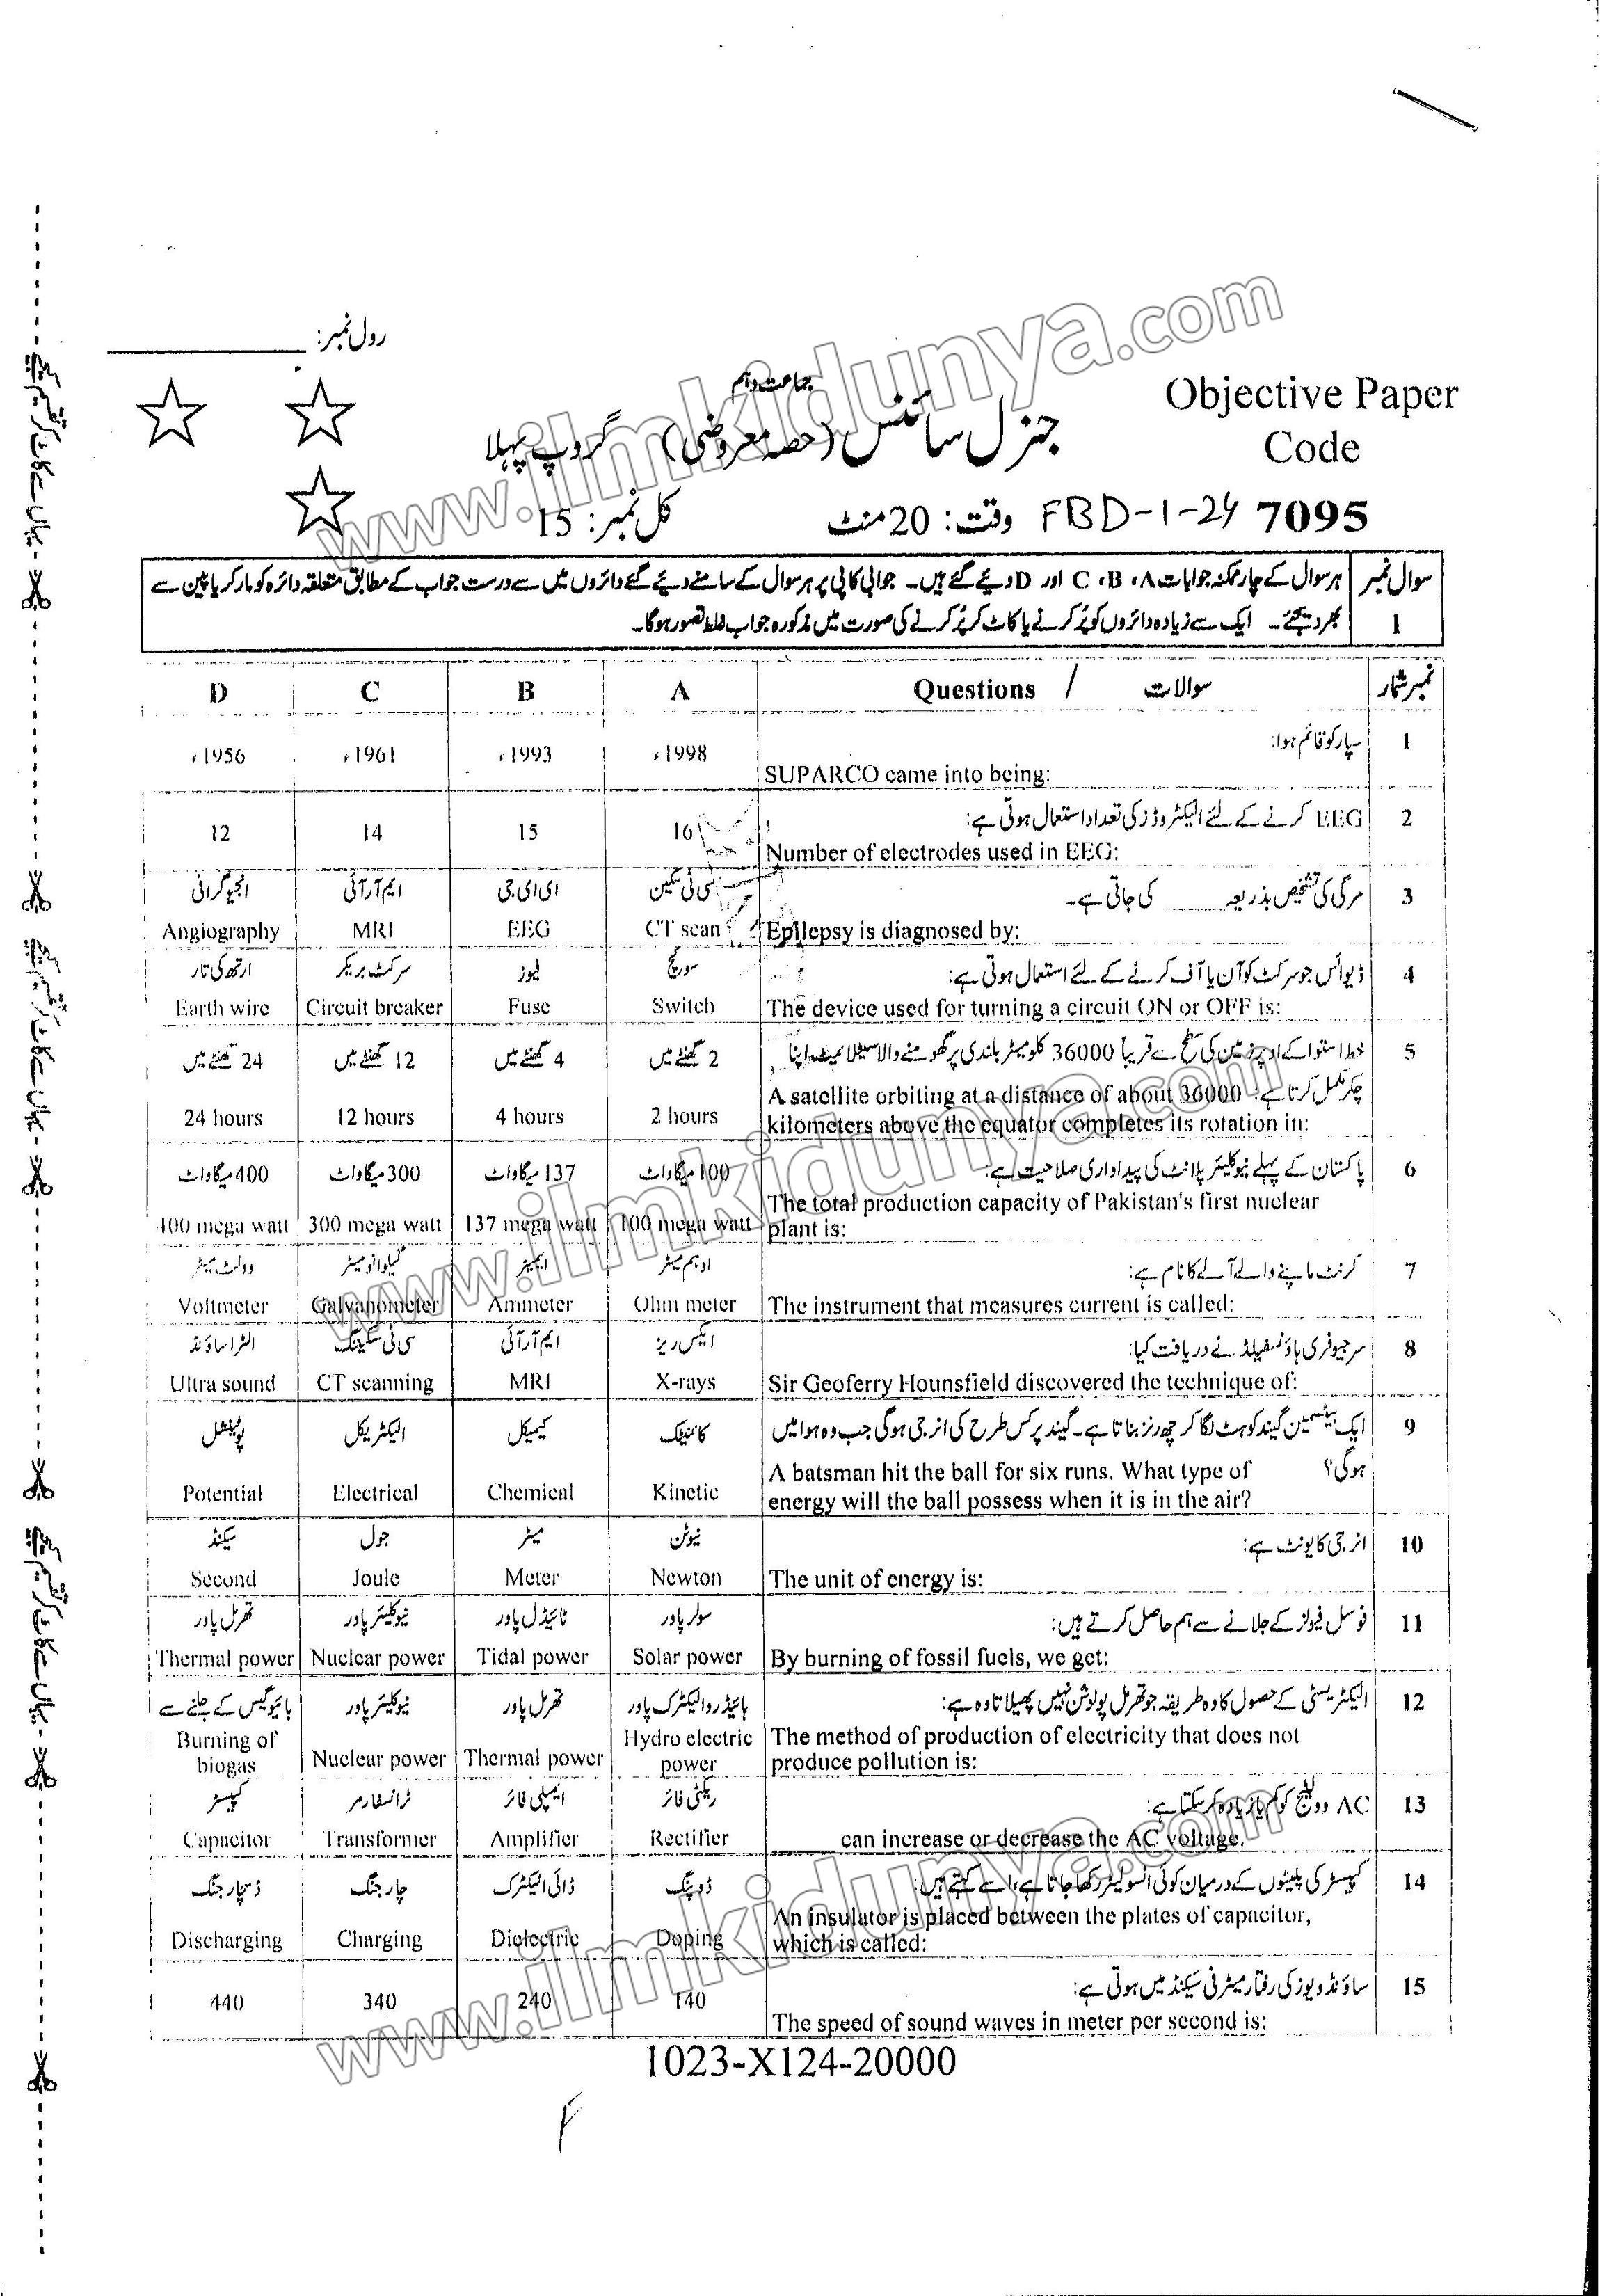 رول نمبر:
جماعت دہم
Objective Paper
جنرل سائنس (حصہ معروضی) گروپ پہلا
Code
کل نمبر: 15
وقت: 20 منٹ
FBD-1-24 7095
سوال نمبر 1
ہر سوال کے چار ممکنہ جوابات A، B، C اور D دیئے گئے ہیں۔ جوابی کاپی پر ہر سوال کے سامنے دیئے گئے دائروں میں سے درست جواب کے مطابق متعلقہ دائرہ کو مارکر یا پین سے
بھر دیجئے۔ ایک سے زیادہ دائروں کو پُر کرنے یا کاٹ کر پُر کرنے کی صورت میں مذکورہ جواب غلط تصور ہوگا۔
نمبر شمار سوالات / Questions A B C D
1 سپارکو قائم ہوا:
SUPARCO came into being:
1998ء 1993ء 1961ء 1956ء
2 EEG کرنے کے لئے الیکٹروڈز کی تعداد استعمال ہوتی ہے:
Number of electrodes used in EEG:
16 15 14 12
3 مرگی کی تشخیص بذریعہ ____ کی جاتی ہے۔
سی ٹی سکین ای ای جی ایم آر آئی انجیوگرافی
Epilepsy is diagnosed by:
CT scan EEG MRI Angiography
4 ڈیوائس جو سرکٹ کو آن یا آف کرنے کے لئے استعمال ہوتی ہے:
سوئچ فیوز سرکٹ بریکر ارتھ کی تار
The device used for turning a circuit ON or OFF is:
Switch Fuse Circuit breaker Earth wire
5 خط استوا کے اوپر زمین کی سطح سے قریباً 36000 کلومیٹر بلندی پر گھومنے والا سیٹلائیٹ اپنا
چکر مکمل کرتا ہے:
2 گھنٹے میں 4 گھنٹے میں 12 گھنٹے میں 24 گھنٹے میں
A satellite orbiting at a distance of about 36000
kilometers above the equator completes its rotation in:
2 hours 4 hours 12 hours 24 hours
6 پاکستان کے پہلے نیوکلیئر پلانٹ کی پیداواری صلاحیت ہے:
100 میگاواٹ 137 میگاواٹ 300 میگاواٹ 400 میگاواٹ
The total production capacity of Pakistan's first nuclear
plant is:
100 mega watt 137 mega watt 300 mega watt 400 mega watt
7 کرنٹ ماپنے والے آلے کا نام ہے:
اوہم میٹر ایمیٹر گیلوانومیٹر وولٹ میٹر
The instrument that measures current is called:
Ohm meter Ammeter Galvanometer Voltmeter
8 سر جیوفری ہاؤنسفیلڈ نے دریافت کیا:
ایکس ریز ایم آر آئی سی ٹی سکیننگ الٹرا ساؤنڈ
Sir Geoferry Hounsfield discovered the technique of:
X-rays MRI CT scanning Ultra sound
9 ایک بیٹسمین گیند کو ہٹ لگا کر چھ رنز بناتا ہے۔ گیند پر کس طرح کی انرجی ہوگی جب وہ ہوا میں
ہوگی؟
کائنیٹک کیمیکل الیکٹریکل پوٹینشل
A batsman hit the ball for six runs. What type of
energy will the ball possess when it is in the air?
Kinetic Chemical Electrical Potential
10 انرجی کا یونٹ ہے:
نیوٹن میٹر جول سیکنڈ
The unit of energy is:
Newton Meter Joule Second
11 فوسل فیولز کے جلانے سے ہم حاصل کرتے ہیں:
سولر پاور ٹائیڈل پاور نیوکلیئر پاور تھرمل پاور
By burning of fossil fuels, we get:
Solar power Tidal power Nuclear power Thermal power
12 الیکٹریسٹی کے حصول کا وہ طریقہ جو تھرمل پولوشن نہیں پھیلاتا وہ ہے:
ہائیڈرو الیکٹرک پاور تھرمل پاور نیوکلیئر پاور بائیوگیس کے جلنے سے
The method of production of electricity that does not
produce pollution is:
Hydro electric power Thermal power Nuclear power Burning of biogas
13 AC وولٹیج کو کم یا زیادہ کر سکتا ہے:
ریکٹی فائر ایمپلی فائر ٹرانسفارمر کپیسٹر
____ can increase or decrease the AC voltage.
Rectifier Amplifier Transformer Capacitor
14 کپیسٹر کی پلیٹوں کے درمیان کوئی انسولیٹر رکھا جاتا ہے، اسے کہتے ہیں:
ڈوپنگ ڈائی الیکٹرک چارجنگ ڈسچارجنگ
An insulator is placed between the plates of capacitor,
which is called:
Doping Dielectric Charging Discharging
15 ساؤنڈ ویوز کی رفتار میٹر فی سیکنڈ میں ہوتی ہے:
The speed of sound waves in meter per second is:
140 240 340 440
1023-X124-20000
www.ilmkidunya.com
www.ilmkidunya.com
www.ilmkidunya.com